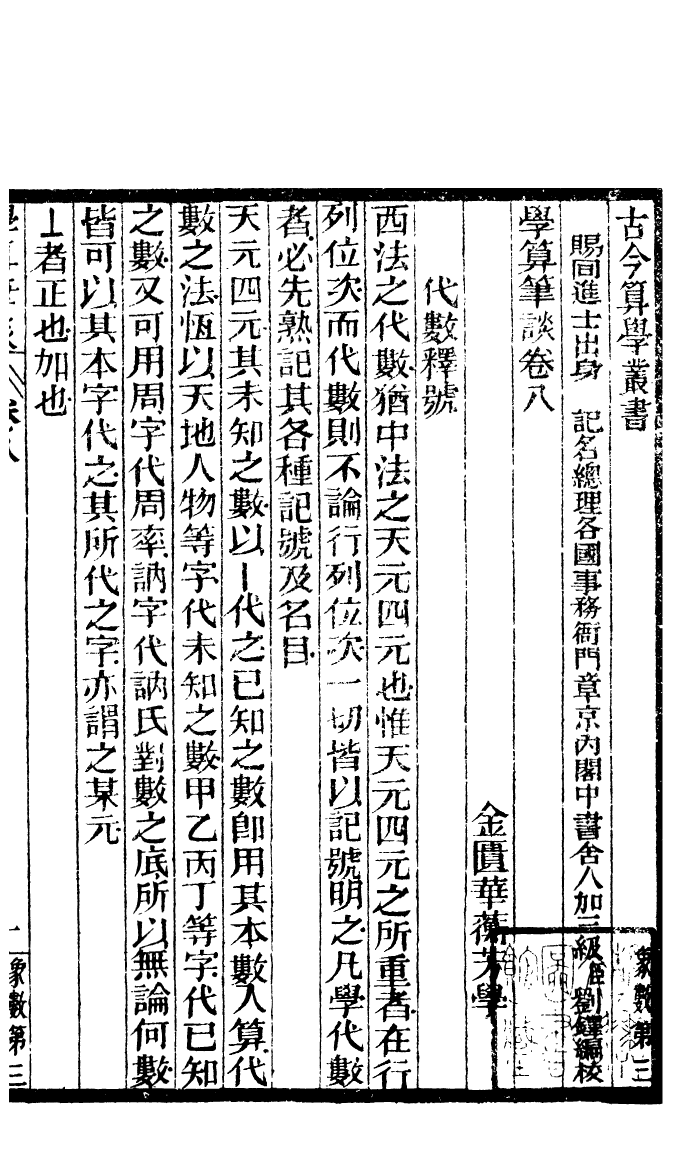 古今算學叢書　象數第三
賜同進士出身　記名總理各國事務衙門章京內閣中書舍人加三級劉鐸編校
學算筆談卷八
金匱華蘅芳學
代數釋號
西法之代數猶中法之天元四元也惟天元四元之所重者在行
列位次而代數則不論行列位次一切皆以記號明之凡學代數
者必先熟記其各種記號及名目
天元四元其未知之數以丨代之已知之數卽用其本數入算代
數之法恆以天地人物等字代未知之數甲乙丙丁等字代已知
之數又可用周字代周率訥字代訥氏對數之底所以無論何數
皆可以其本字代之其所代之字亦謂之某元
丄者正也加也
卷八　一　象數第三